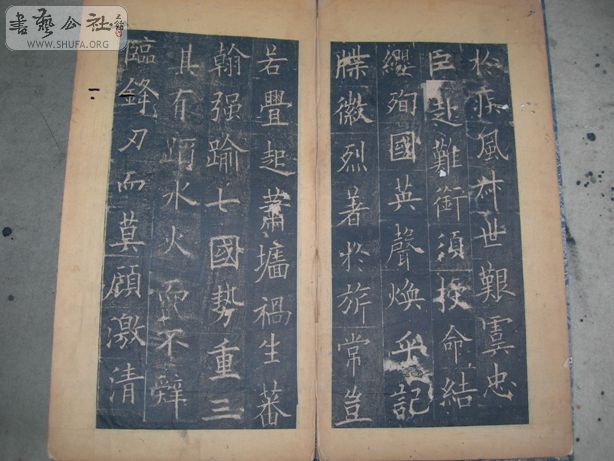 書藝公社
WWW.SHUFA.ORG
於疾風叔世艱虞忠
臣赴難銜須授命結
纓殉國英聲煥乎記
牒徽烈著於旂常豈
若疊起蕭墻禍生蕃
翰强踰七國勢重三
其有蹈水火而不辭
臨鋒刃而莫顧激清